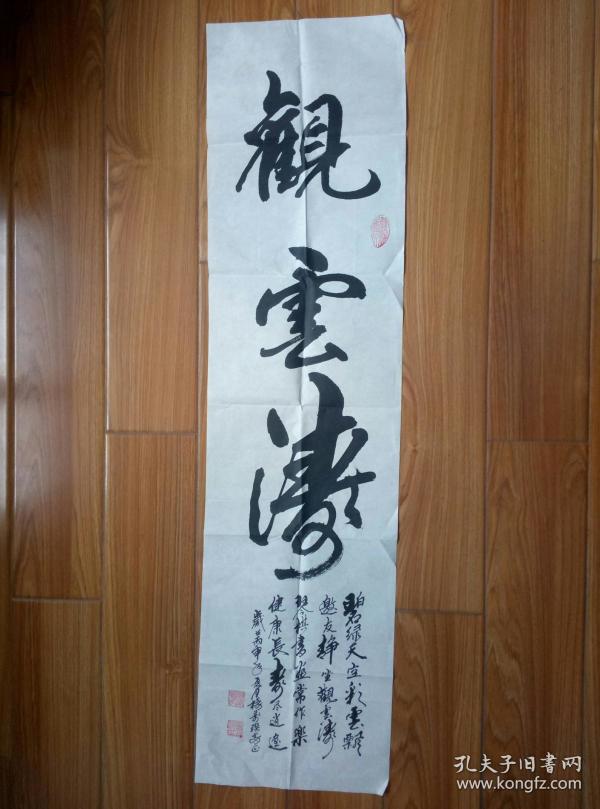 觀雲濤
碧绿天空彩雲飄
邀友静坐觀雲濤
琴棋書画常作樂
健康長壽尽逍遥
歲丙申年
孔夫子旧书网
www.kongfz.com